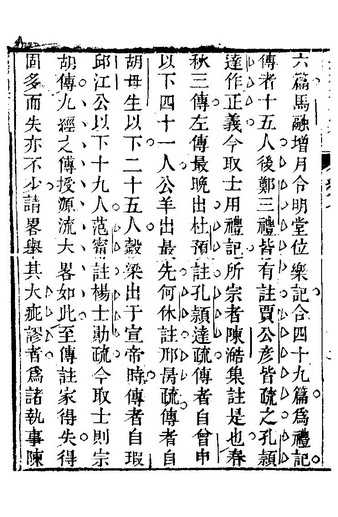 六篇馬融增月令明堂位樂記合四十九篇爲禮記
傳者十五人後鄭三禮皆有註賈公彥皆疏之孔穎
達作正義今取士用禮記所宗者陳澔集註是也春
秋三傳左傳最晚出杜預註孔穎達疏傳者自曾申
以下四十一人公羊出最先何休註邢昺疏傳者自
胡母生以下二十五人穀梁出于宣帝時傳者自瑕
邱江公以下十九人范甯註楊士勛疏今取士則宗
胡傳九經之傳授源流大畧如此至傳註家得失得
固多而失亦不少請畧舉其大疵謬者爲諸執事陳